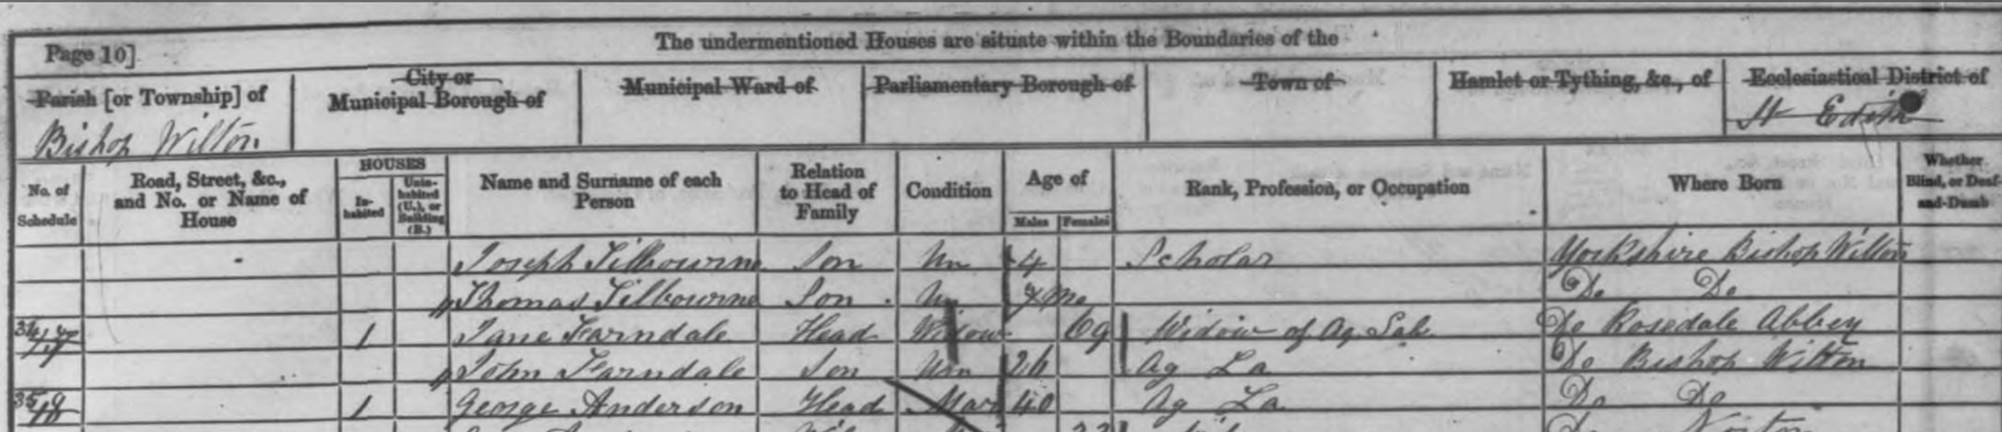 Page 10]
The undermentioned Houses are situate within the Boundaries of the
Parish [or Township] of
Bishop Wilton
City or
Municipal Borough of
Municipal Ward of
Parliamentary Borough of
Town of
Hamlet or Tything, &c., of
Ecclesiastical District of
St Edith
No. of Schedule
Road, Street, &c., and No. or Name of House
HOUSES
In-habited
Unin-habited (U.), or Building (B.)
Name and Surname of each Person
Relation to Head of Family
Condition
Age of
Males
Females
Rank, Profession, or Occupation
Where Born
Whether Blind, or Deaf-and-Dumb
Joseph Tilbourne Son Un 4 Scholar Yorkshire Bishop Wilton
Thomas Tilbourne Son Un 7 Mo Do Do
34 1 Jane Farndale Head Widow 69 Widow of Ag Lab Do Rosedale Abbey
John Farndale Son Un 26 Ag La Do Bishop Wilton
35 1 George Anderson Head Mar 40 Ag La Do Do
Norton